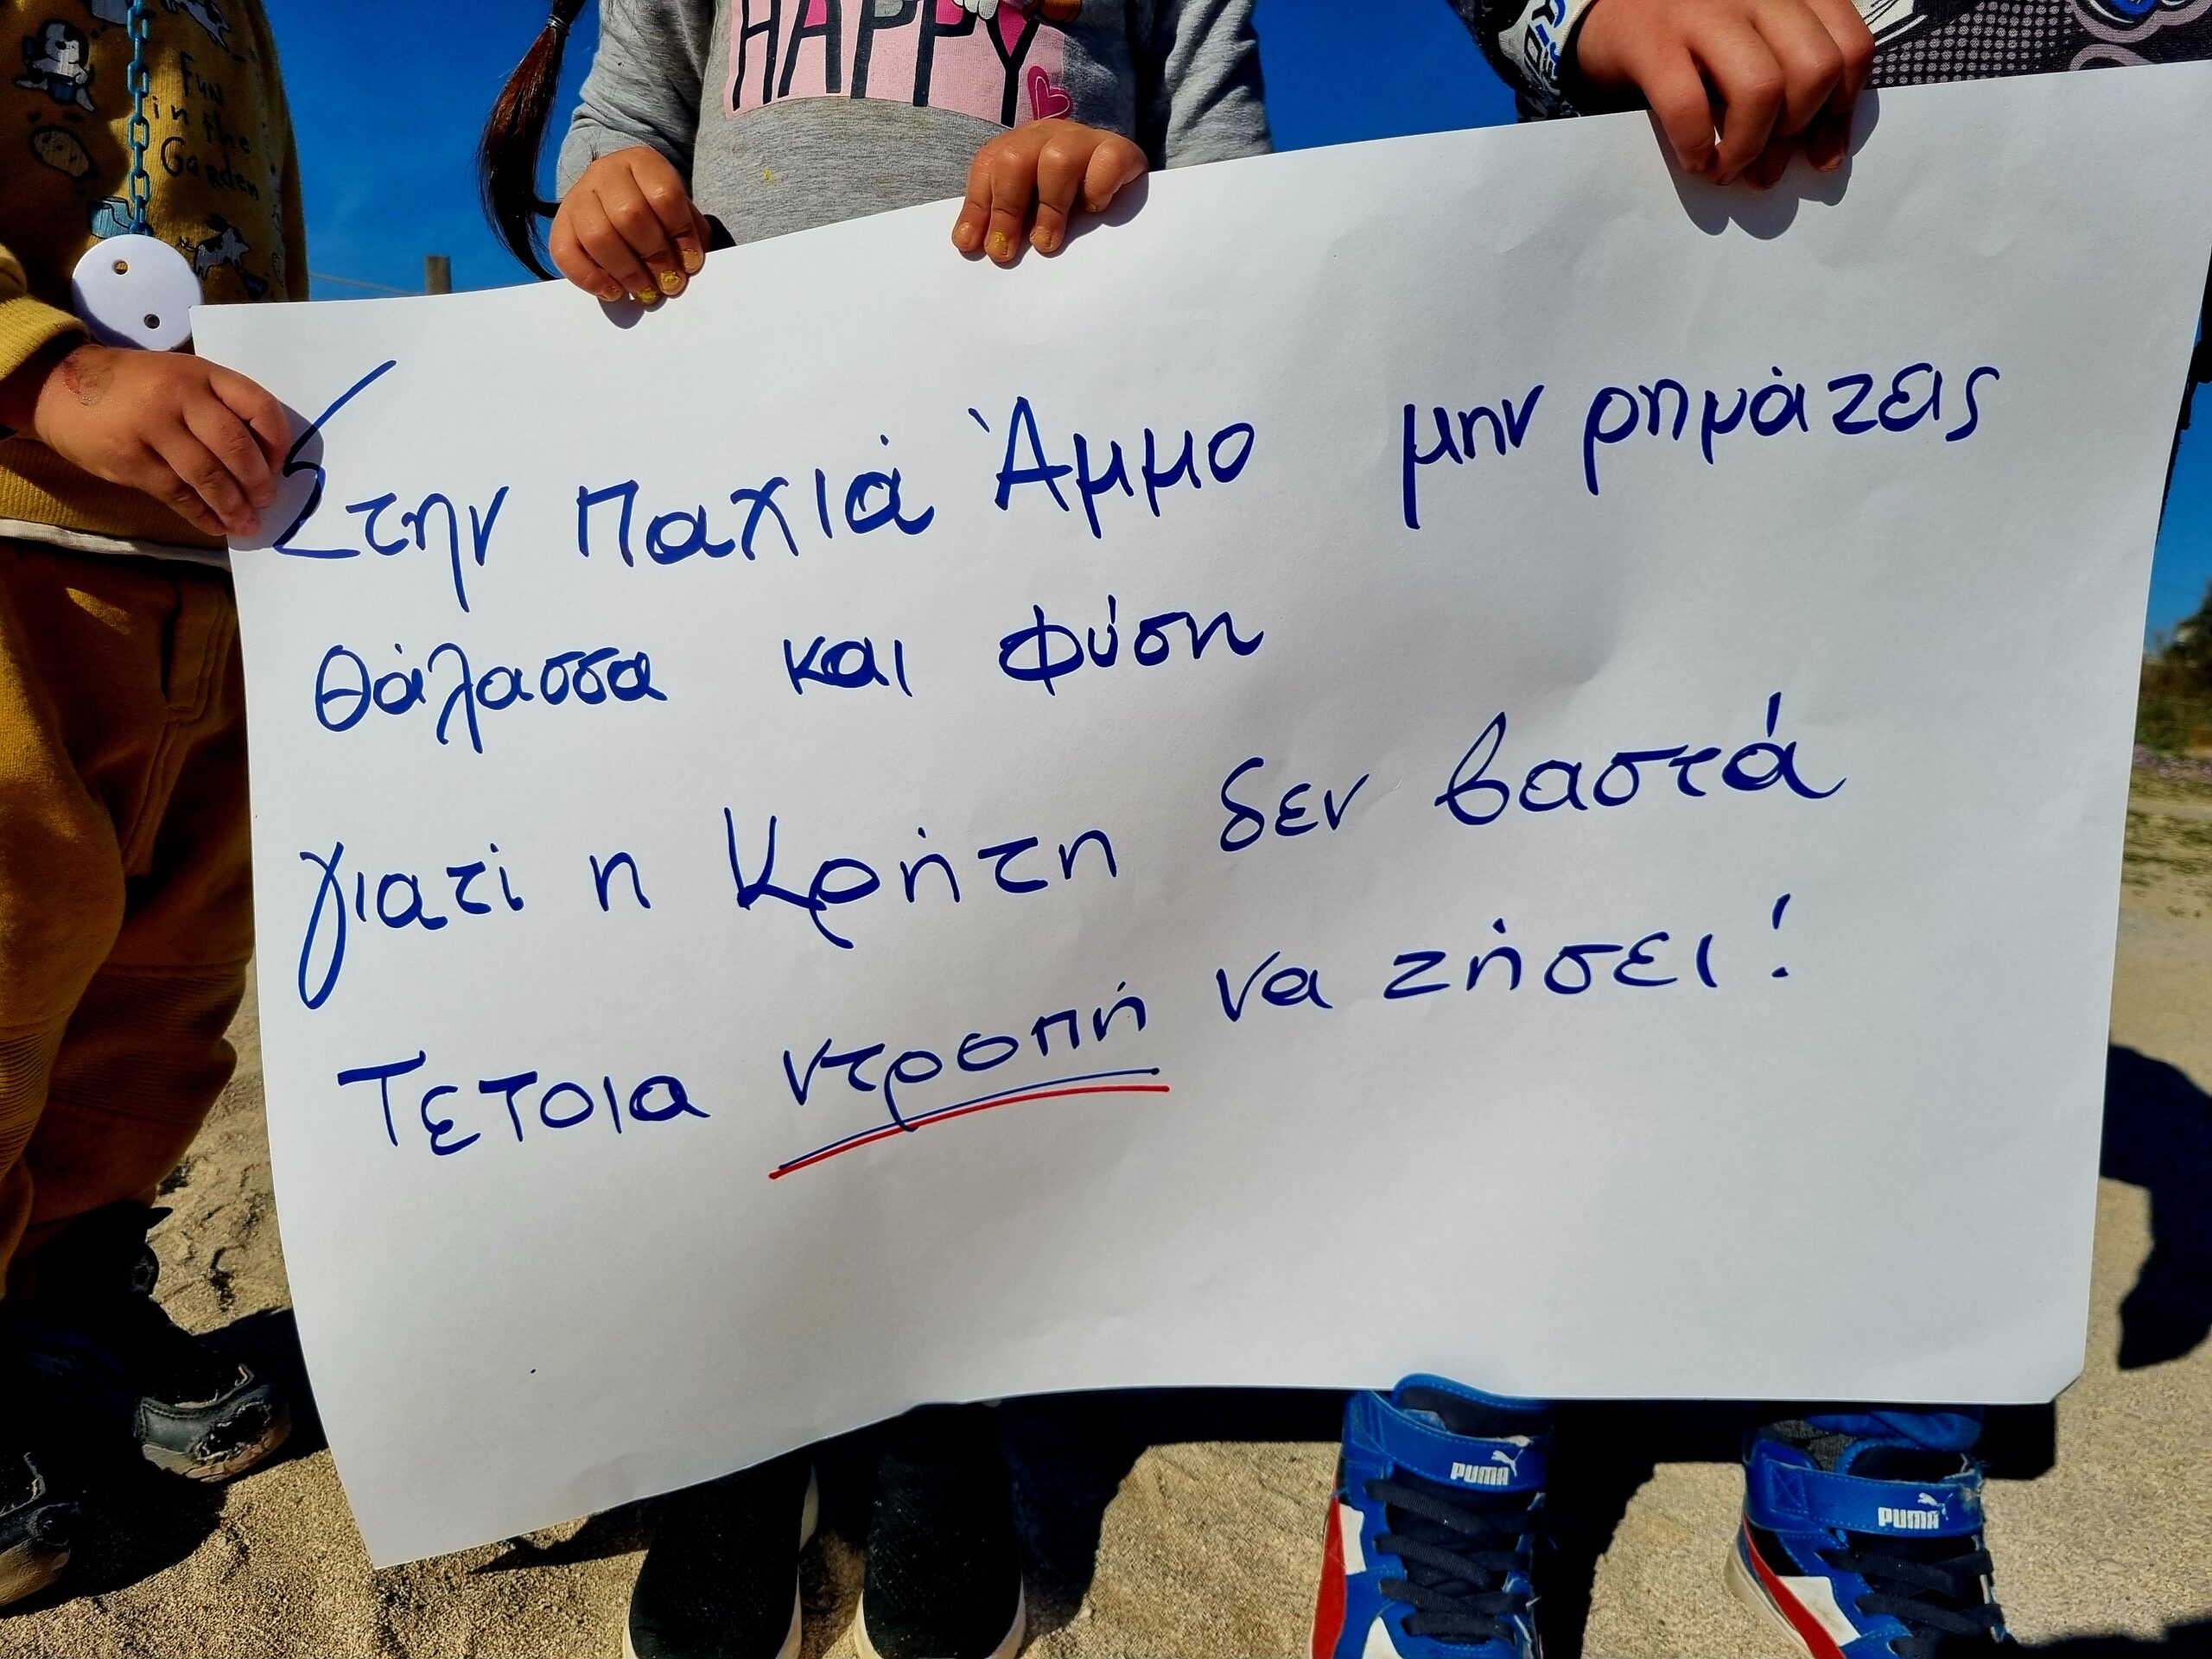 Fun
in the
Garden
HAPPY
Στην παχιά Άμμο μην ρημάζεις
θάλασσα και φύση
γιατί η Κρήτη δεν βαστά
Τέτοια ντροπή να ζήσει!
PUMA
PUMA